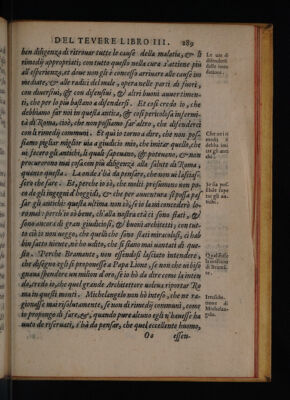 DEL TEVERE LIBRO III. 289
ben diligenza di ritrouar tutte le cause della malatia, & li
rimedij appropriati; con tutto questo nella cura s'attiene più
all'esperienza, et doue non gli è concesso arriuare alle cause im
mediate, & alle radici del male, opera nelle parti di fuori,
con diuersiui, & con difensiui, & altri buoni auuertimen-
ti, che per lo più bastano a difenderci. Et così credo io, che
debbiamo far noi in questa antica, & così pericolosa infermi-
tà di Roma, cioè, che non possiamo far altro, che difenderci
con li rimedij communi. Et quì io torno a dire, che non pos-
siamo pigliar miglior uia a giudicio mio, che imitar quello, che
ne fecero gli antichi, li quali sapeuano, & poteuano, & non
procurarono mai cosa con più diligenza alla salute di Roma,
quanto questa. La onde s'hà da pensare, che non ui lascias-
sero che fare. Et, perche io sò, che molti presumono non po-
co de gli ingegni d'hoggidì, & che per auuentura si possa pas
sar gli antichi: questa ultima non sò, se io la mi concederò lo-
ro mai: perch'io sò bene, ch'alla nostra età ci sono stati, &
sono ancora di gran giudiciosi, & buoni architetti; con tut-
to ciò io non ueggo, che quelli che sono stati miracolosi, ci hab
bin fatto niente, nè ho udito, che si siano mai uantati di que-
sto. Perche Bramante, non essendosi lasciato intendere,
che disegno egli si proponesse a Papa Lione, se non che ui biso
gnaua spendere un milion d'oro, se io hò da dire come la inten
do, credo io, che quel grande Architettore uolesse riportar Ro
ma in questi monti. Michelangelo non hò inteso, che ne ra-
gionasse mai risolutamente, se non di rimedij communi, come
io propongo di fare, &, quando pure alcuno egli n'hauesse ha
uuto de riseruati, s'hà da pensar, che quel eccellente huomo,
Oo essen-